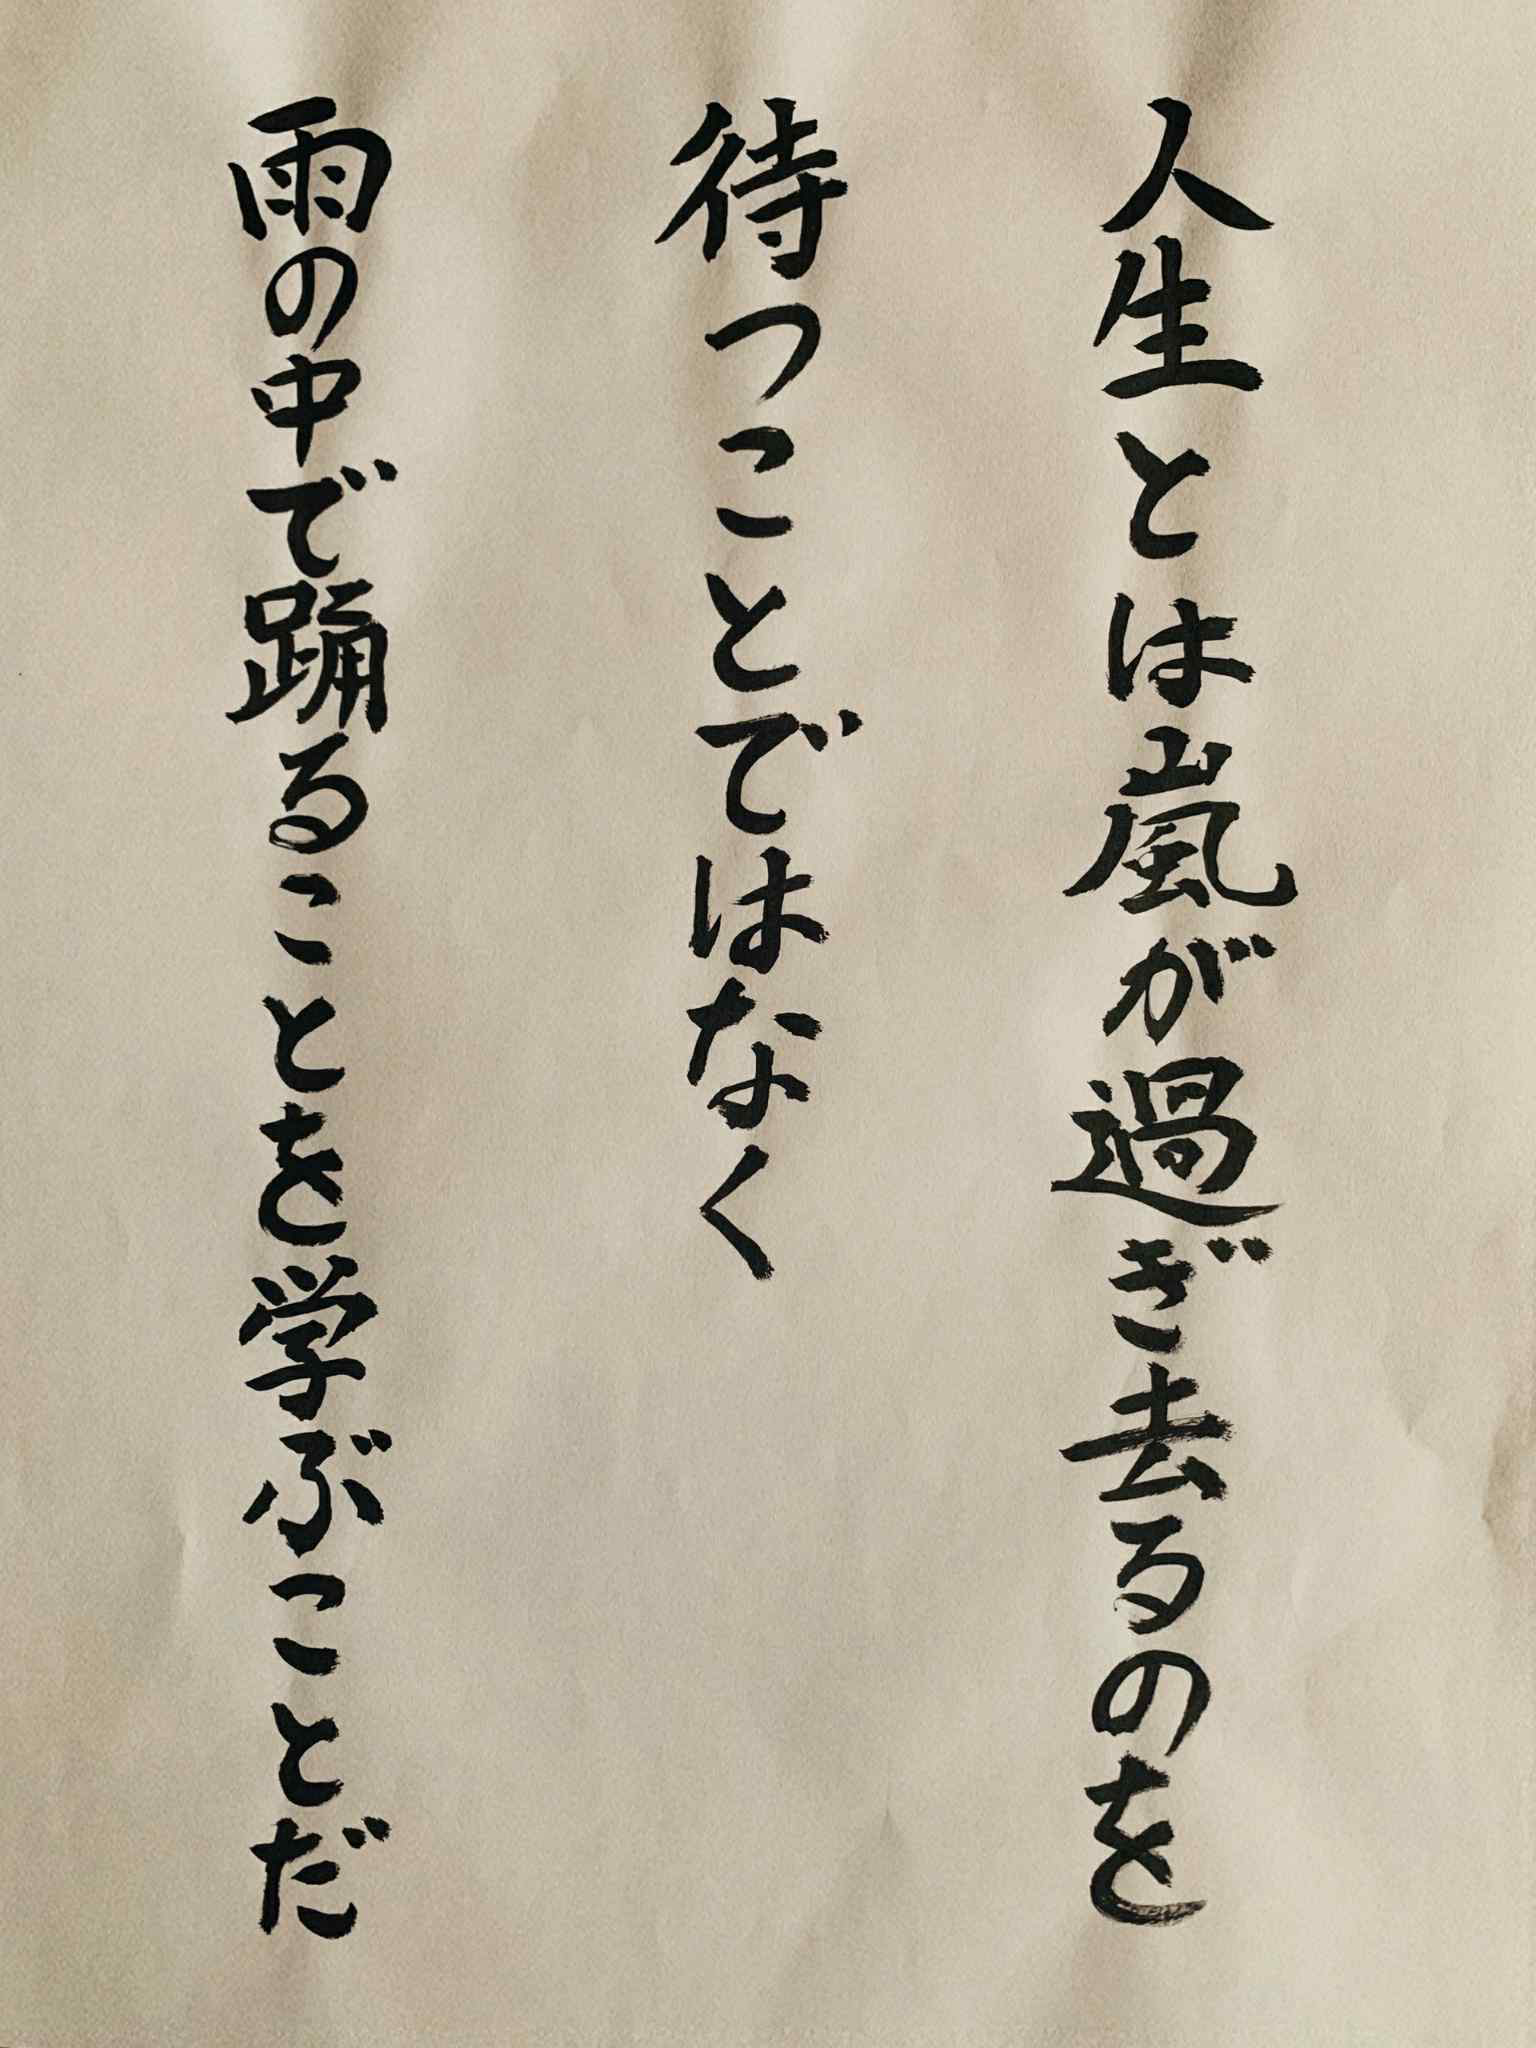 人生とは嵐が過ぎ去るのを
待つことではなく
雨の中で踊ることを学ぶことだ